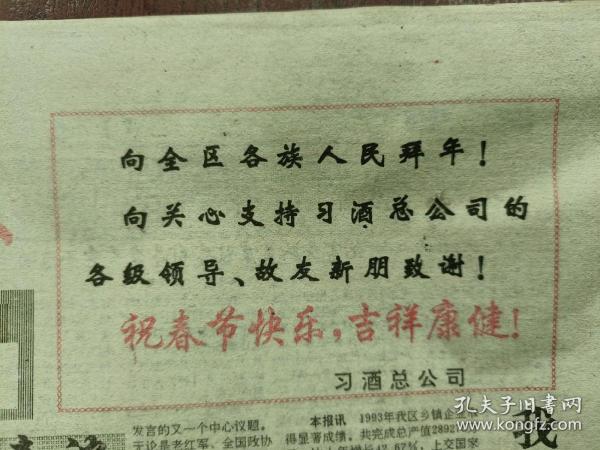 向全区各族人民拜年！
向关心支持习酒总公司的
各级领导、故友新朋致谢！
祝春节快乐，吉祥康健！
习酒总公司
发言的又一个中心议题。
无论是老红军、全国政协
本报讯 1993年我区乡镇企业
得显著成绩。共完成总产值2892
我
孔夫子旧书网
www.kongfz.com